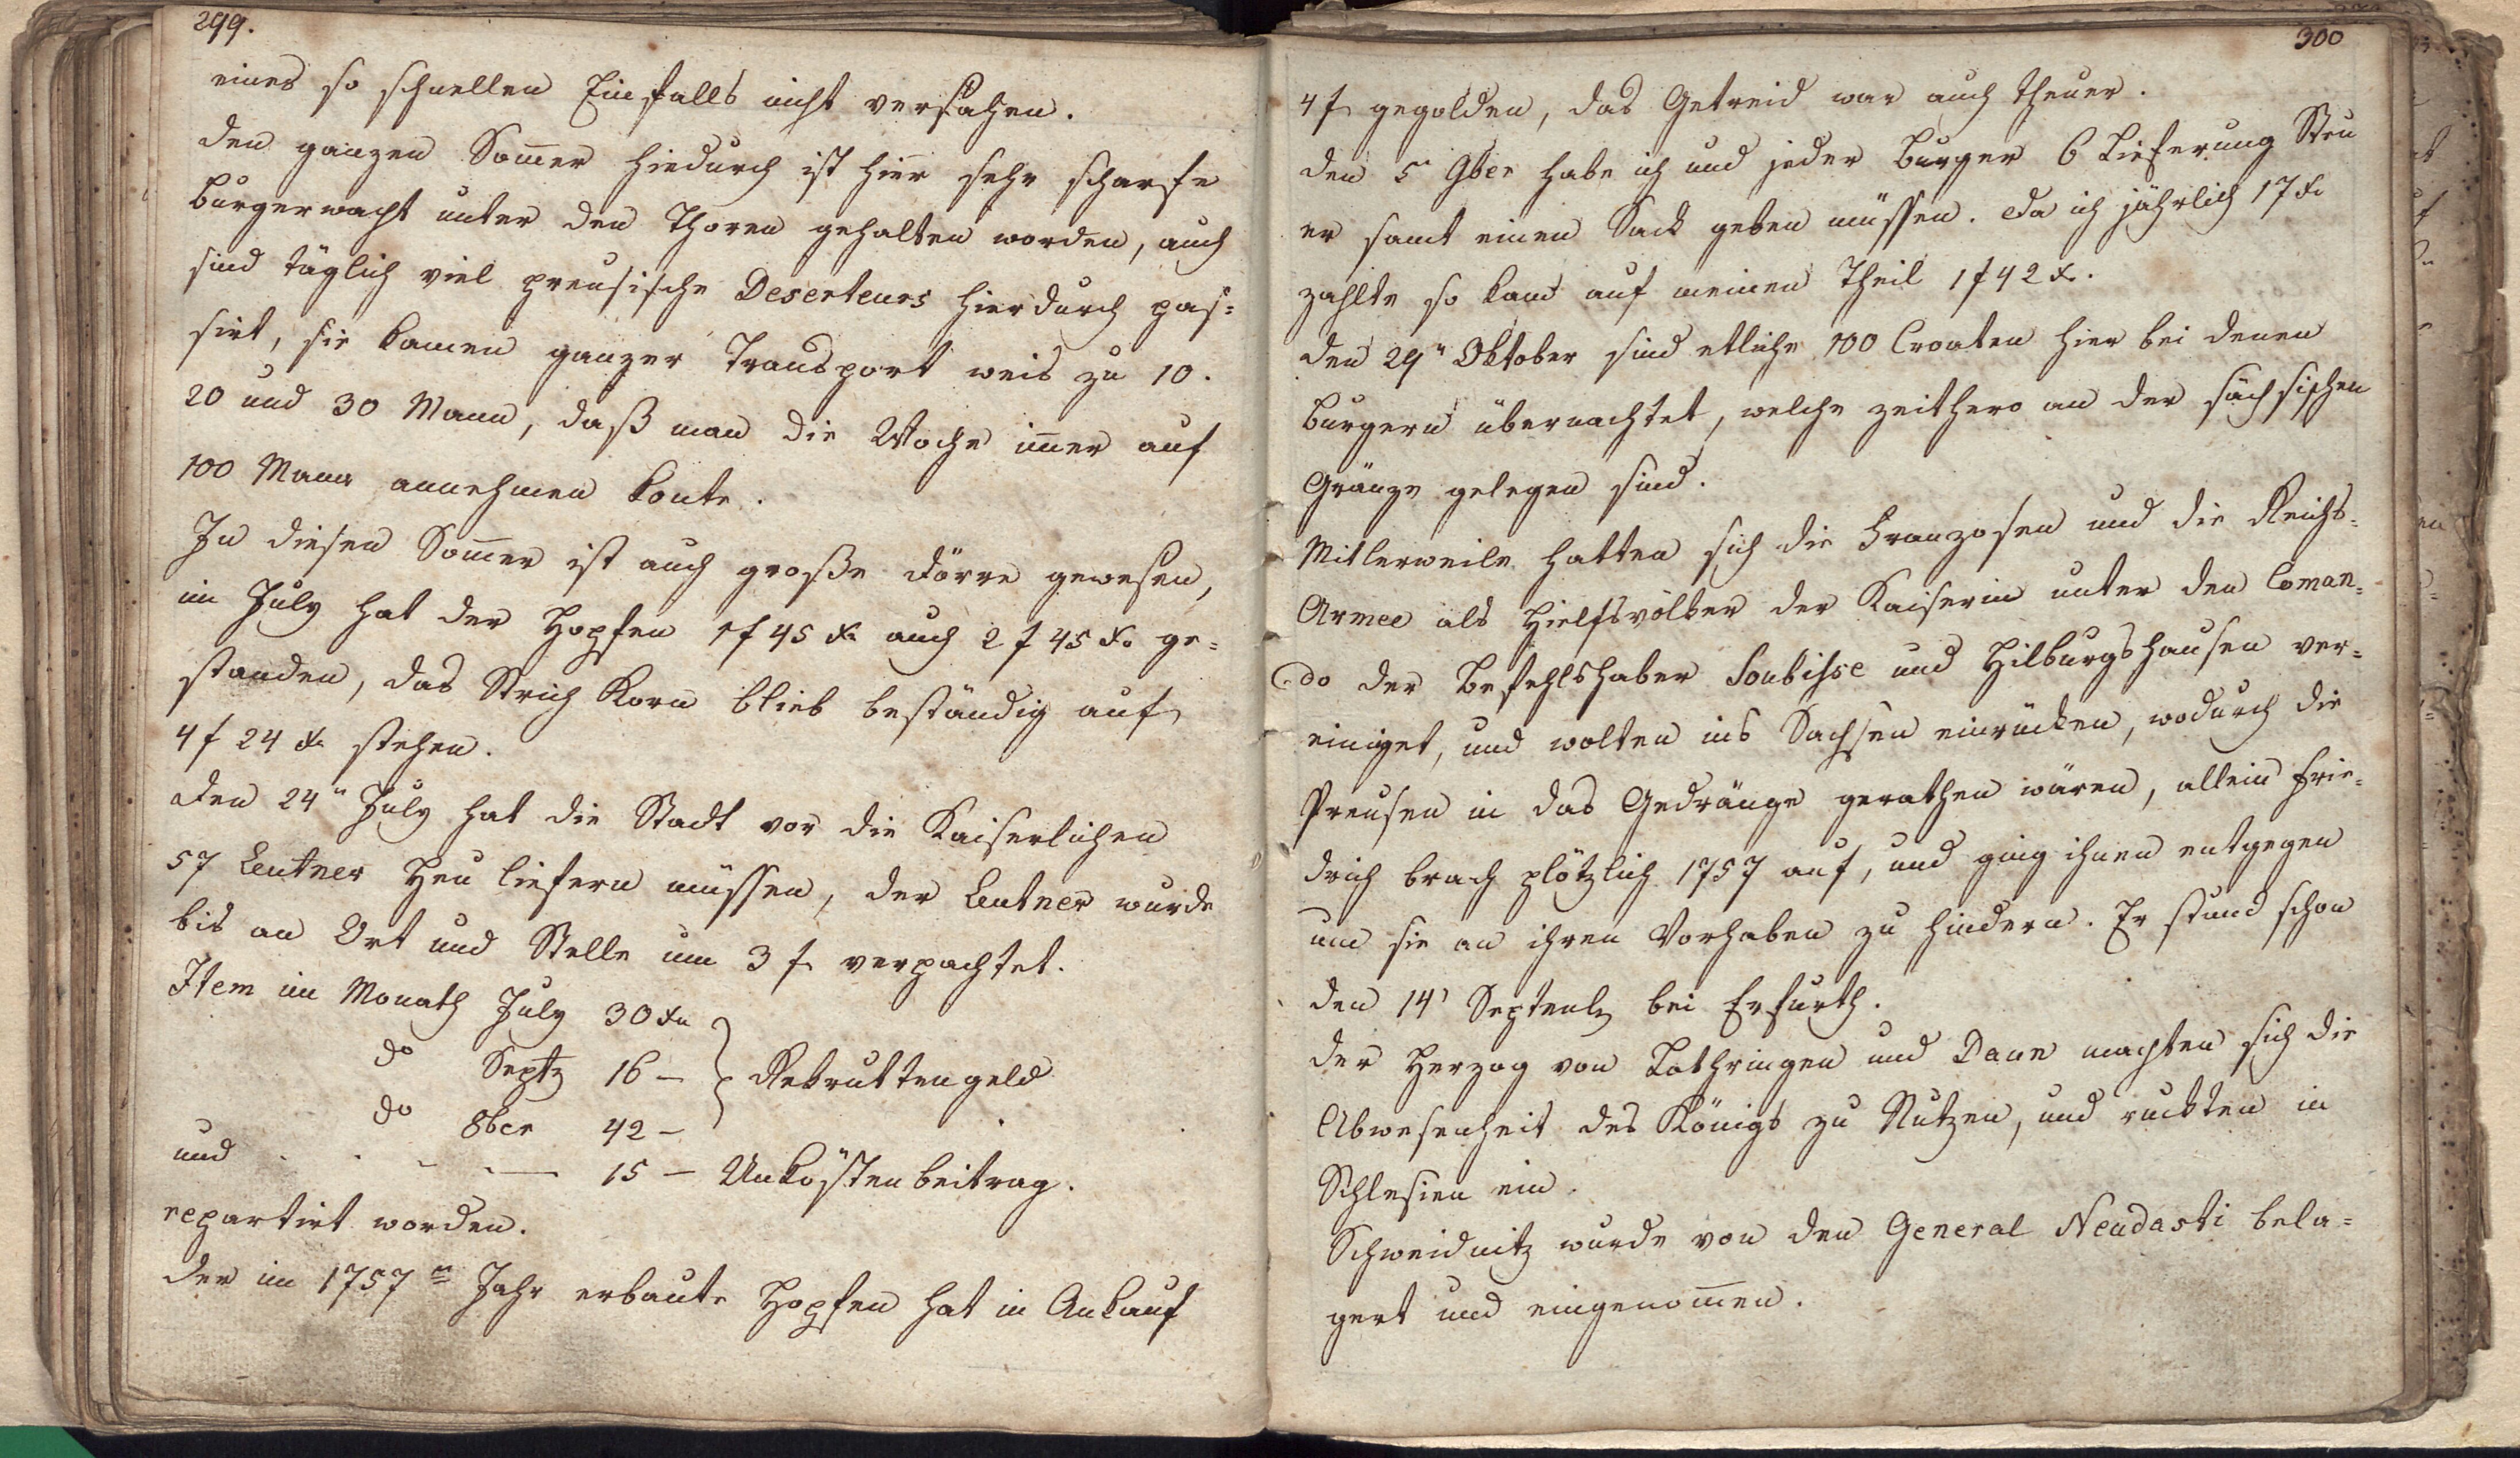 299.
eines so schnellen Einfalls nicht versahen.
den ganzen Som̄er hiedurch ist hier sehr scharfe
Burgerwacht unter den Thoren gehalten worden, auch
sind täglich viel preusische Deserteurs hier durch pas=
sirt, sie kamen ganzer Transport weis zu 10.
20 und 30 Mann, daß man die Woche im̄er auf
100 Mann annehmen konte.
In diesen Som̄er ist auch große Dörre gewesen,
im July hat der Hopfen 1 f 45 xr auch 2 f 45 xr ge=
standen, das Strich Korn blieb beständig auf
4 f 24 xr stehen.
den 24" July hat die Stadt vor die Kaiserlichen
57 Centner Heu liefern müssen, der Centner wurde
bis an Ort und Stelle um 3 f verpachtet.
Item im Monath July 30 xr
do Septz 16 – } Rekruttengeld
do 8ber 42 –
und . . - . — 15 – Unköstenbeitrag.
repartirt worden.
der im 1757m Jahr erbaute Hopfen hat in Ankauf
300
4 f gegolden, das Getreid war auch theuer.
den 5 9ber habe ich und jeder Burger 6 Lieferung Steu
er samt einen Sack geben müssen. Da ich jährlich 17 xr
zahlte so kam auf meinen Theil 1 f 42 xr.
den 29" Oktober sind etliche 100 Croaten hier bei denen
Burgern übernachtet, welche zeithero an der sächsischen
Gränze gelegen sind.
Mitlerweile hatten sich die Franzosen und die Reichs=
Armee als Hielfsvölker der Kaiserin unter den Coman=
do der Befehlshaber Soubisse und Hilburgshausen ver=
einiget, und wolten ins Sachsen einrücken, wodurch die
Preusen in das Gedränge gerathen wären, allein Frie=
drich brach plötzlich 1757 auf, und ging ihnen entgegen
um sie an ihren Vorhaben zu hindern. Er stund schon
den 14' Septemb bei Erfurth.
der Herzog von Lothringen und Daun machten sich die
Abwesenheit des Königs zu Nutzen, und ruckten in
Schlesien ein.
Schweidnitz wurde von den General Neudasti bela=
gert und eingenom̄en.